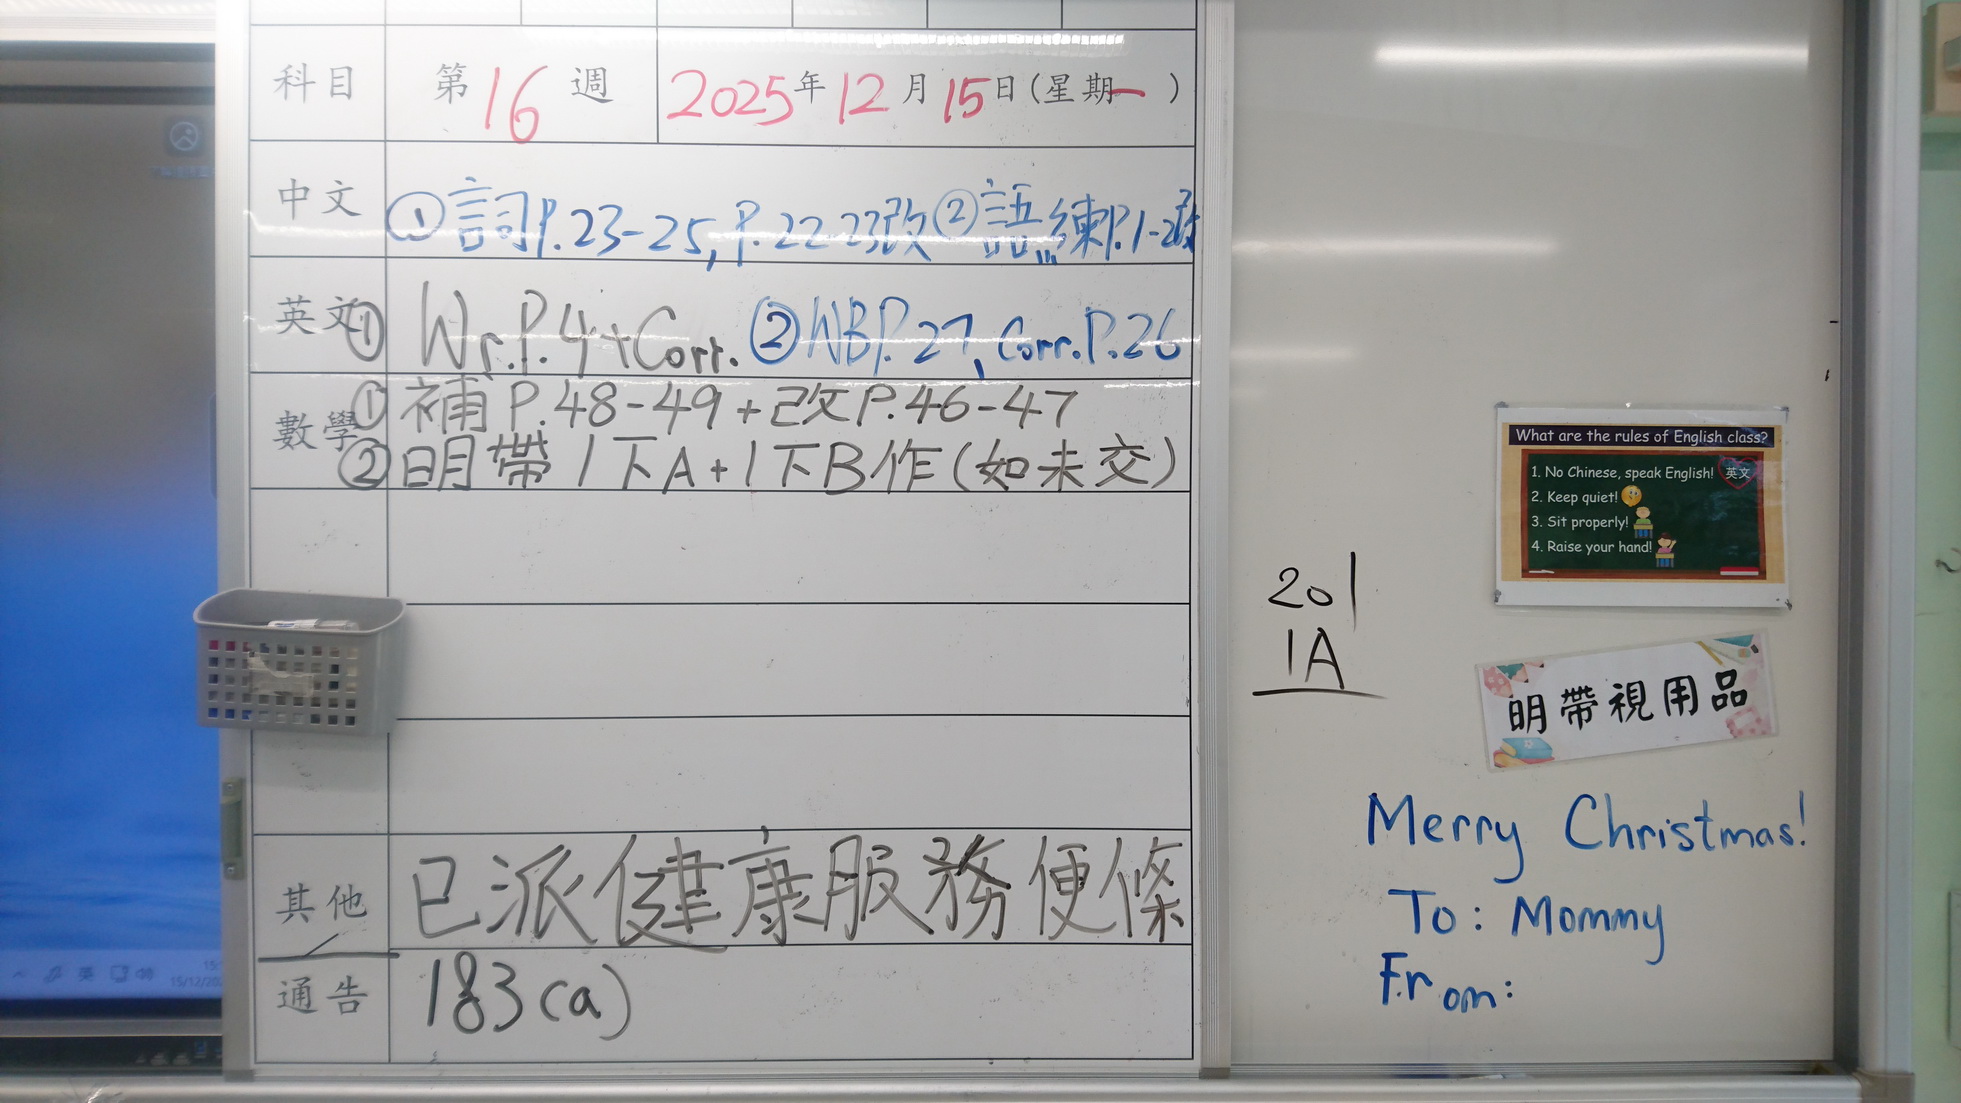 科目 第16週 2025年12月15日(星期一)
中文 ①詞P.23-25, P.22-23改②語練P.1-2改
英文 ① Wr.P.4+Corr. ②WBP.27, Corr.P.26
數學 ①補P.48-49+改P.46-47
②明帶1下A+1下B作(如未交)
其他 已派健康服務便條
通告 183(a)
英
15/12/202
What are the rules of English class?
1. No Chinese, speak English! 英文
2. Keep quiet!
3. Sit properly!
4. Raise your hand!
201
1A
明帶視用品
Merry Christmas!
To: Mommy
From: